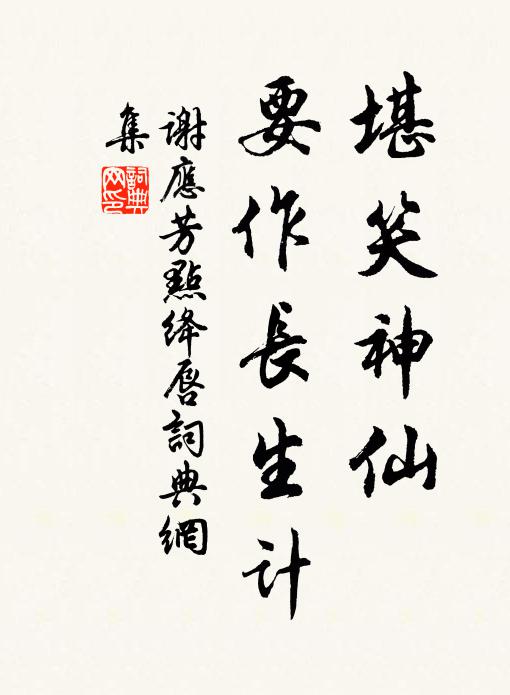 堪笑神仙
要作長生計
謝應芳點絳唇詞典網
集
詞典
网印